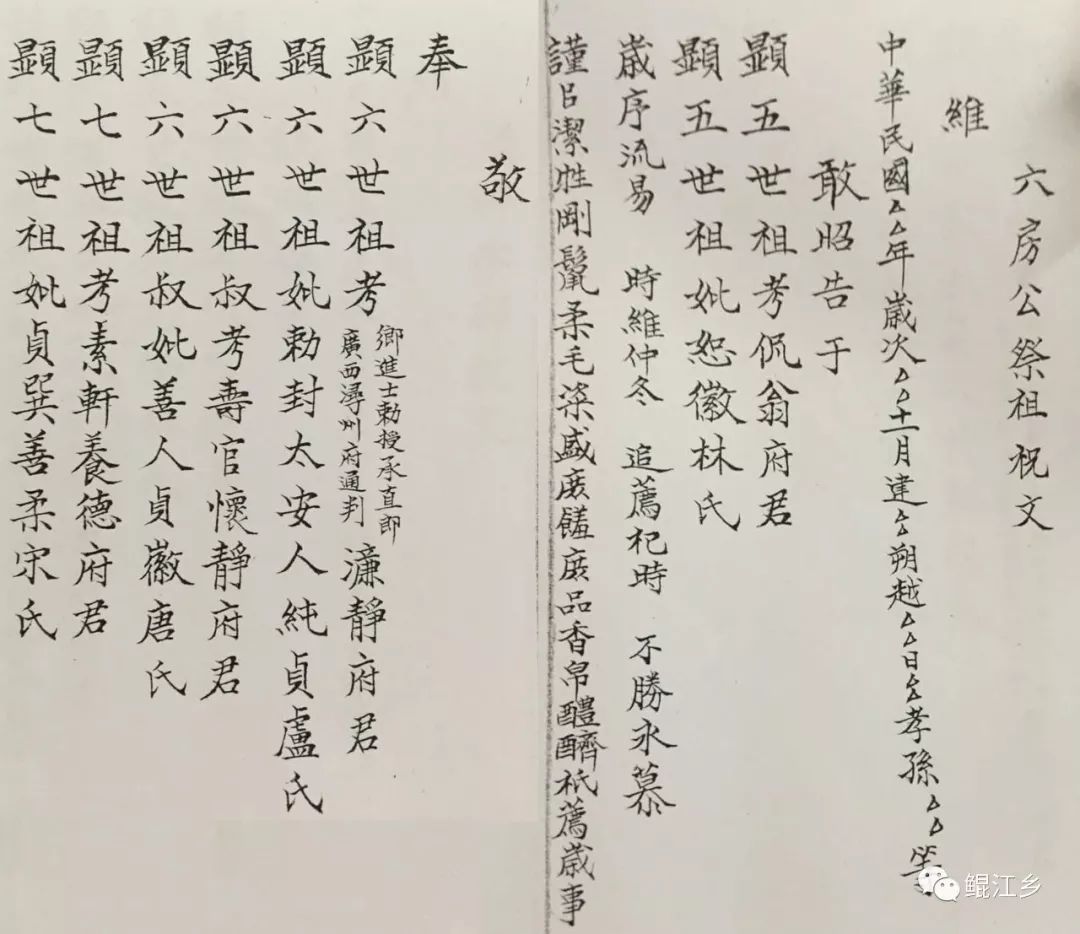 六房公祭祖祝文
維
中華民國△△年歲次△△十一月建△△朔越△△日△△孝孫△△等
敢昭告于
顯五世祖考侃翁府君
顯五世祖妣恕徽林氏
歲序流易 時維仲冬 追薦祀時 不勝永慕
謹㠯潔牲剛鬣柔毛粢盛庶饈庶品香帛醴醑祇薦歲事
敬
奉
顯六世祖考鄉進士勅授承直郎廣西潯州府通判濂靜府君
顯六世祖妣勅封太安人純貞盧氏
顯六世祖叔考壽官懷靜府君
顯六世祖叔妣善人貞徽唐氏
顯七世祖考素軒養德府君
顯七世祖妣貞巽善柔宋氏
鲲江乡